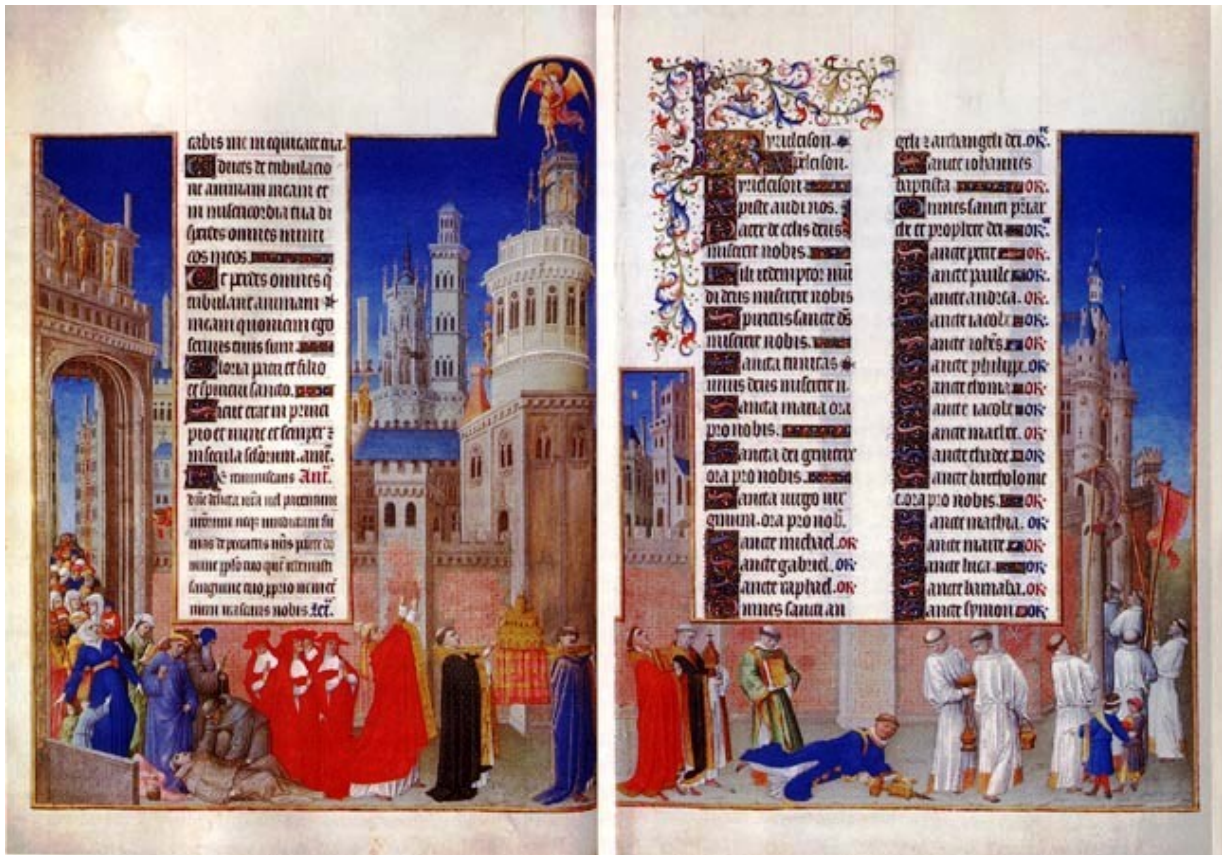 cabis me in equitate tua.
Educes de tribulacio
ne animam meam et
in misericordia tua di
sperdes omnes inimi
cos meos.
Et perdes omnes q̄
tribulant animam
meam quoniam ego
servus tuus sum
Gloria patri et filio
et spiritui sancto.
Sicut erat in princi
pio et nunc et semper ⁊
in secula sc̄lorum. amē.
Ne reminiscaris Añt.
dñe delicta nr̄a vel parentum
nr̄orum neqꝫ vindictam su
mas de peccatis nr̄is parce do
mine ppl̄o tuo quē redemisti
sanguine tuo ꝓprio ne in eter
num irascaris nobis. Let̄.
Kyrieleison.
Xp̄eleison.
Kyrieleison
Xp̄iste audi nos.
Pater de celis deus
miserere nobis.
Fili redemptor mū
di deus miserere nobis
Spiritus sancte ds̄
miserere nobis.
Sancta trinitas
unus deus miserere n.
Sancta maria ora
pro nobis.
Sancta dei genitrix
ora pro nobis.
Sancta virgo vir
ginum. ora pro nob̄.
Sancte michael. or
Sancte gabriel. or
Sancte raphael. or
Omnes sancti an
geli ⁊ archangeli dei. or̄
Sancte iohannes
baptista or.
Omnes sancti p̄iar
che et prophete dei or.
Sancte petre or.
Sancte paule or.
Sancte andrea. or.
Sancte iacobe or.
Sancte iohēs or.
Sancte philippe. or
Sancte thoma or.
Sancte iacobe or.
Sancte mathee. or
Sancte thadee or.
Sancte bartholome
e. ora pro nobis. or
Sancte mathia. or
Sancte marce or.
Sancte luca or.
Sancte barnaba. or
Sancte symon or